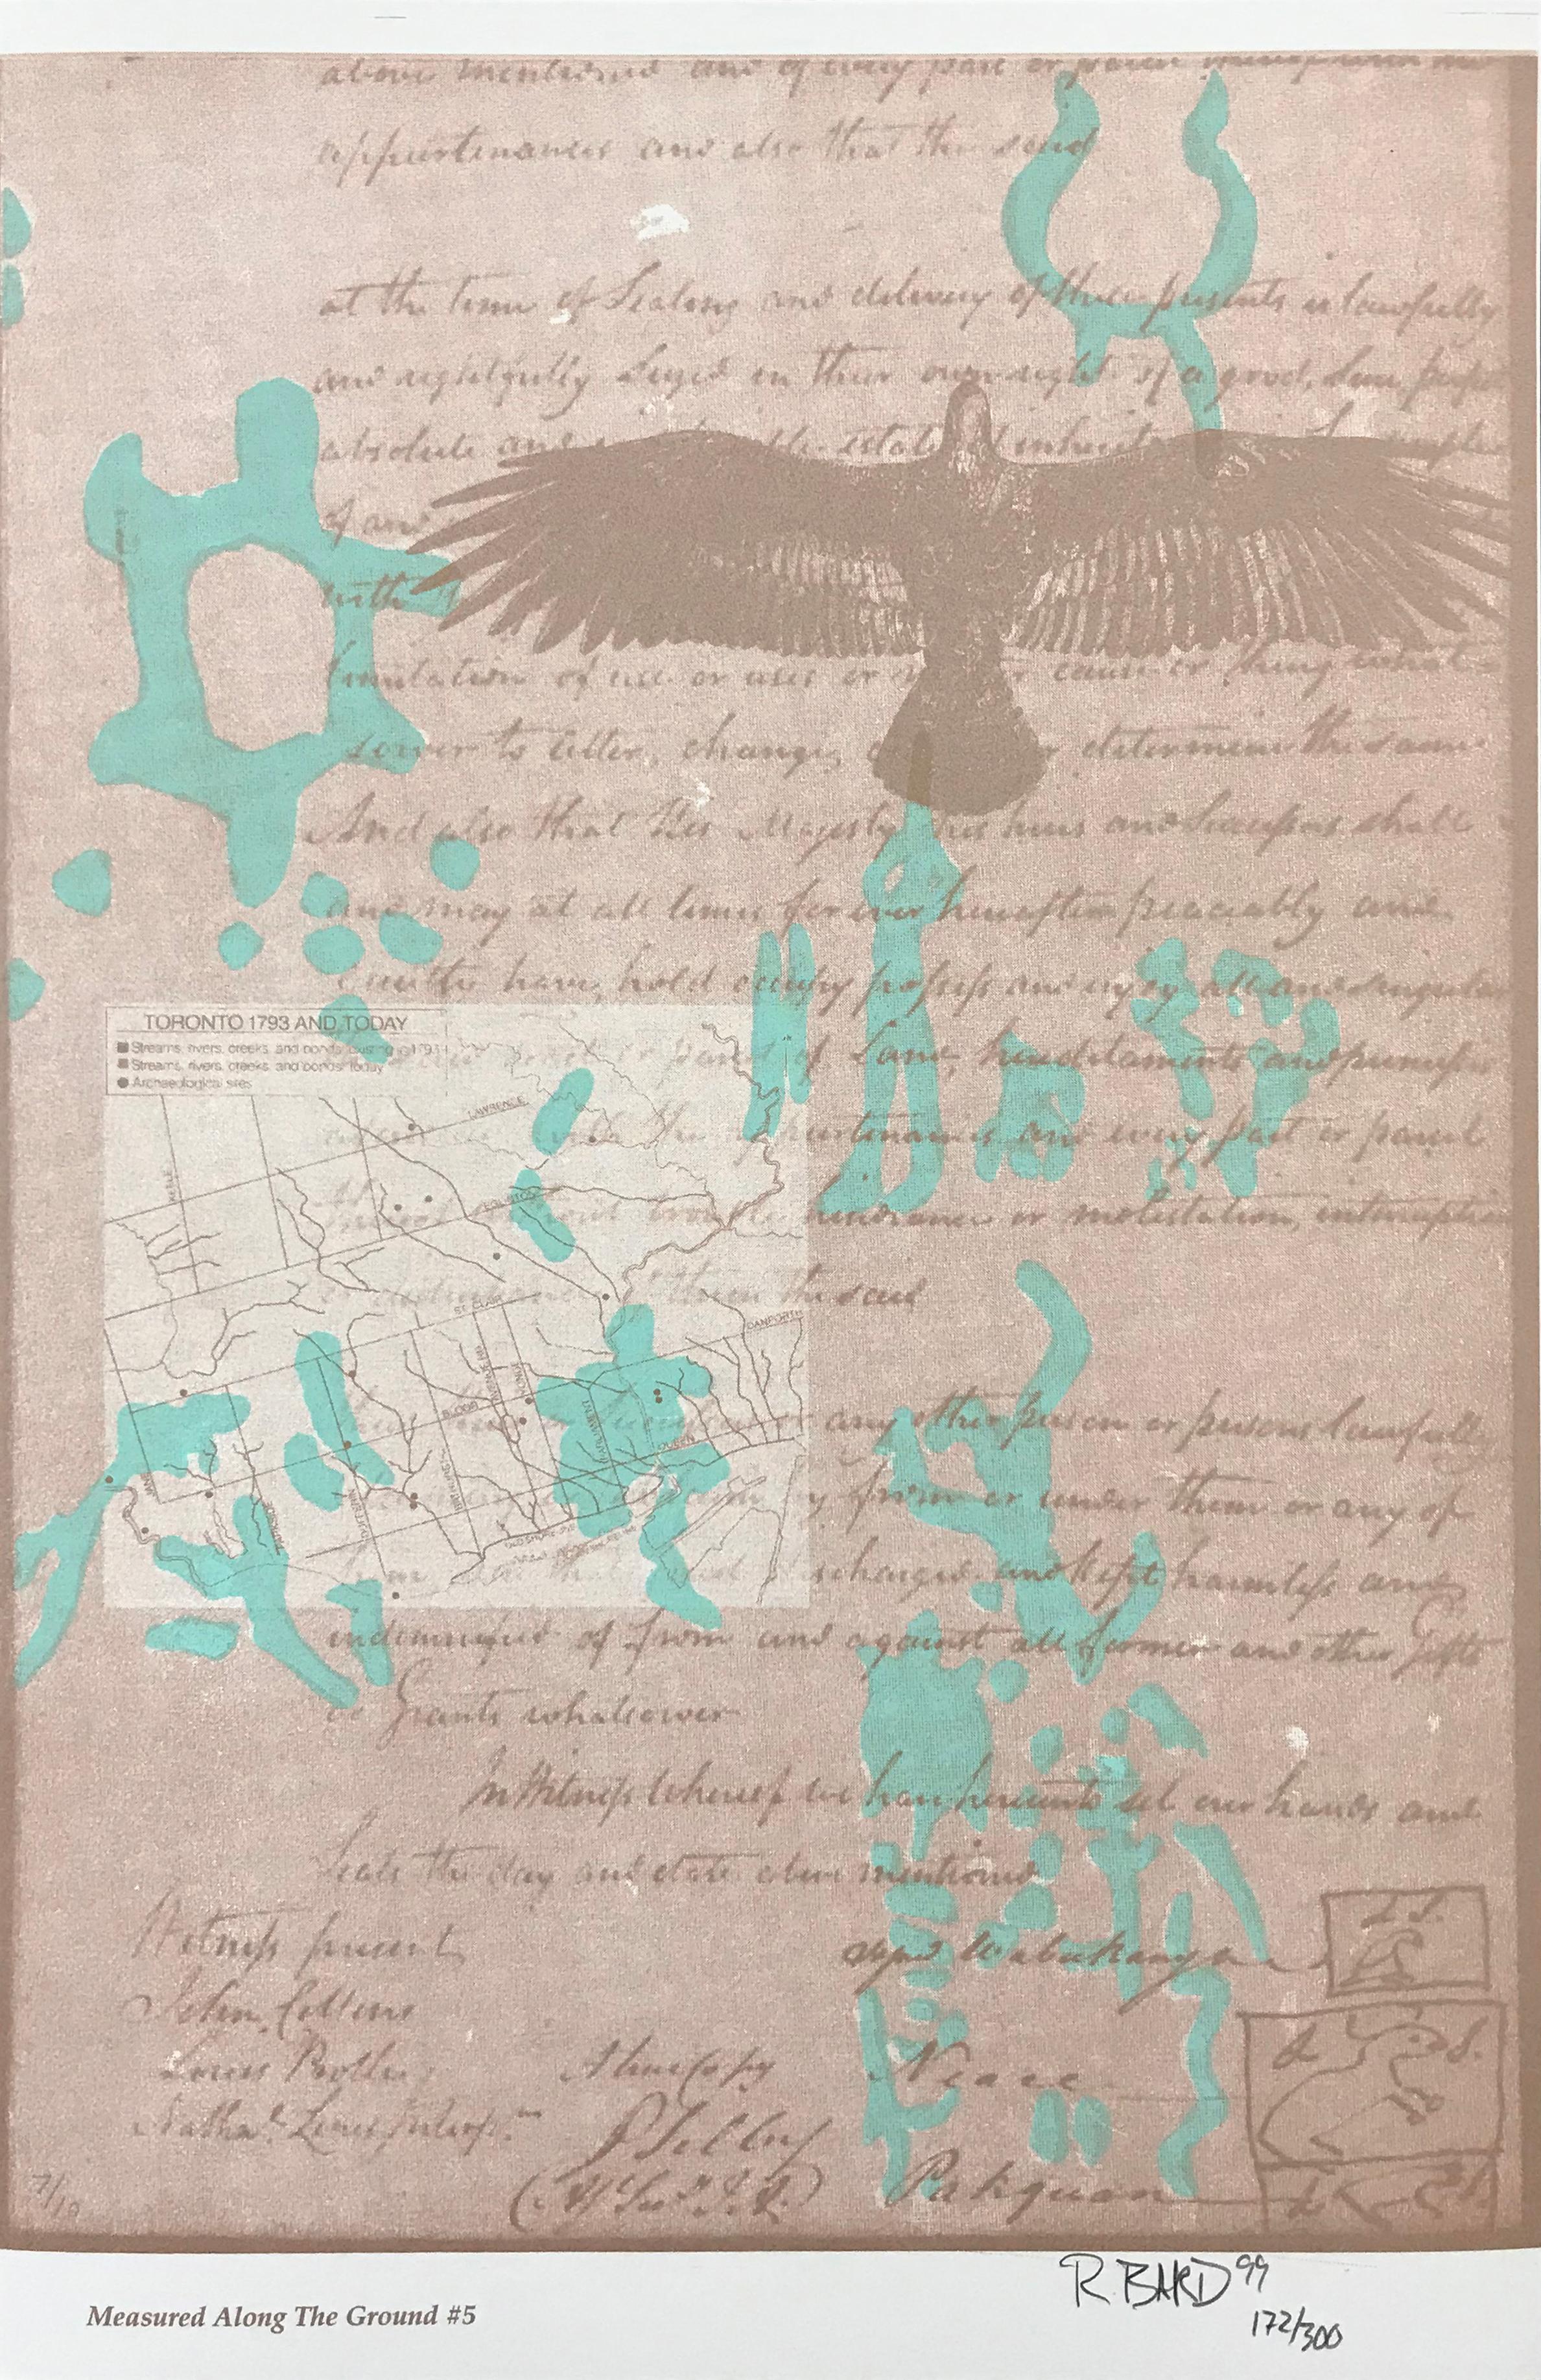 above mentioned and of every part or parcel
appurtenances and also that the said
at the time of Sealing and delivery of these presents is lawfully
and rightfully seized in their own right of a good, Sure, perfect
absolute and estate inheritance
of and
with
limitation of use or uses or cause or thing what
soever to alter, change, or determine the same
And also that His Majesty his heirs and Successors shall
and may at all times for ever hereafter peaceably and
quietly have, hold occupy possess and enjoy all and singular
TORONTO 1793 AND TODAY
Streams, rivers, creeks, and ponds existing in 1793
Streams, rivers, creeks, and ponds today
Archaeological sites
parcel of Land, hereditaments and premises
LAWRENCE
the appurtenances and every part or parcel
KEELE
EGLINTON
without trouble hindrance or molestation, interruption
them the said
ST. CLAIR
DANFORTH
YONGE
BLOOR
or any other person or persons lawfully
PARLIAMENT
QUEEN
by from or under them or any of
DUFFERIN
OLD SHORELINE
discharged and kept harmless and
indemnified of from and against all former and other Gifts
or Grants whatsoever
In Witness Whereof we have hereunto set our hands and
Seals the day and date above mentioned
Witness present
signed Wabukanyne
L S.
John Collins
Louis Protle
A true Copy
Neace
L S.
Nathal. Lines Interpr.
P Selby
Pakquan
L S.
7/10
R BARD 99
Measured Along The Ground #5
172/300